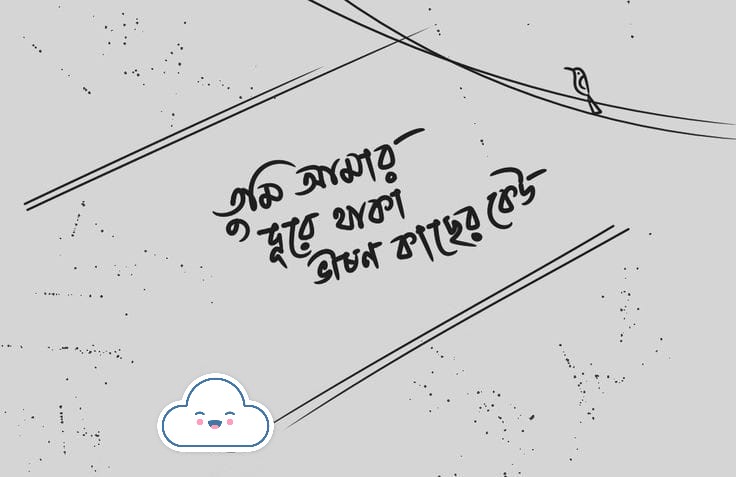 তুমি আমার
দূরে থাকা
ভীষণ কাছের কেউ